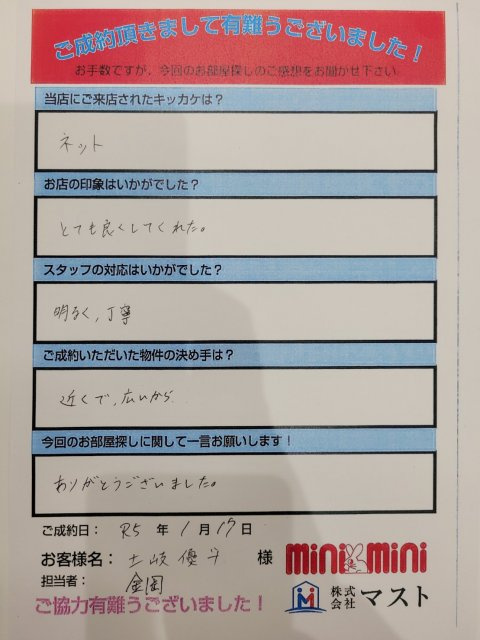 ご成約頂きまして有難うございました！
お手数ですが、今回のお部屋探しのご感想をお聞かせ下さい。
当店にご来店されたキッカケは？
ネット
お店の印象はいかがでした？
とても良くしてくれた。
スタッフの対応はいかがでした？
明るく，丁寧
ご成約いただいた物件の決め手は？
近くで，広いから
今回のお部屋探しに関して一言お願いします！
ありがとうございました。
ご成約日： R5 年 1 月 17 日
お客様名： 土岐 優斗 様
mini mini
担当者： 金岡
株式会社 マスト
ご協力有難うございました！